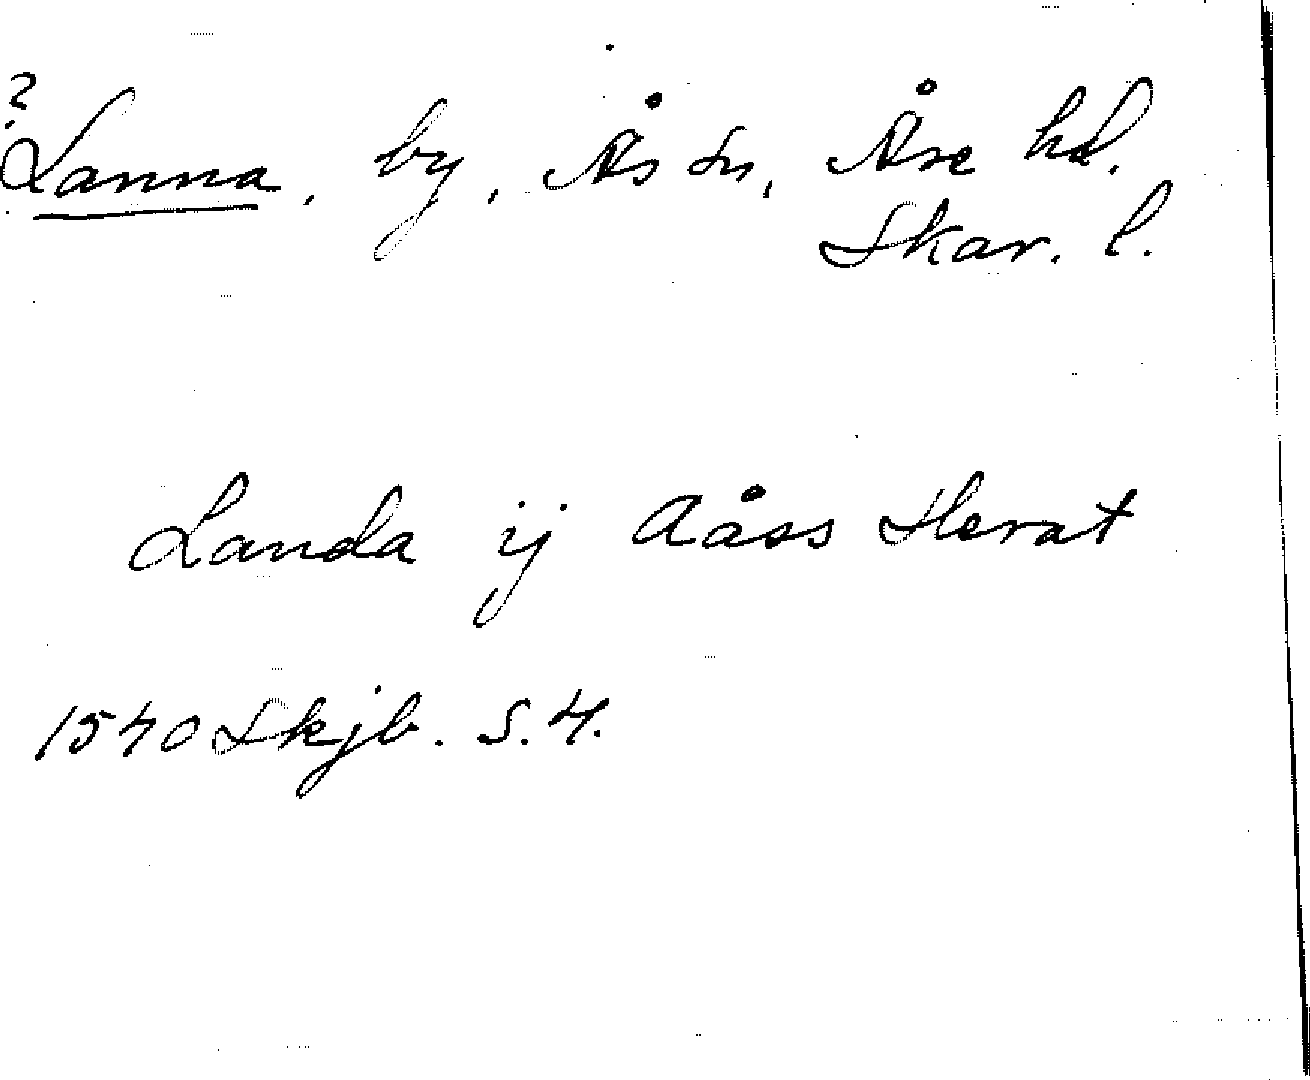 ? Lanna, by, Ås sn, Åse hd.
Skar. l.
Landa ij Aåss Herat
1540 Skjb. S. 4.